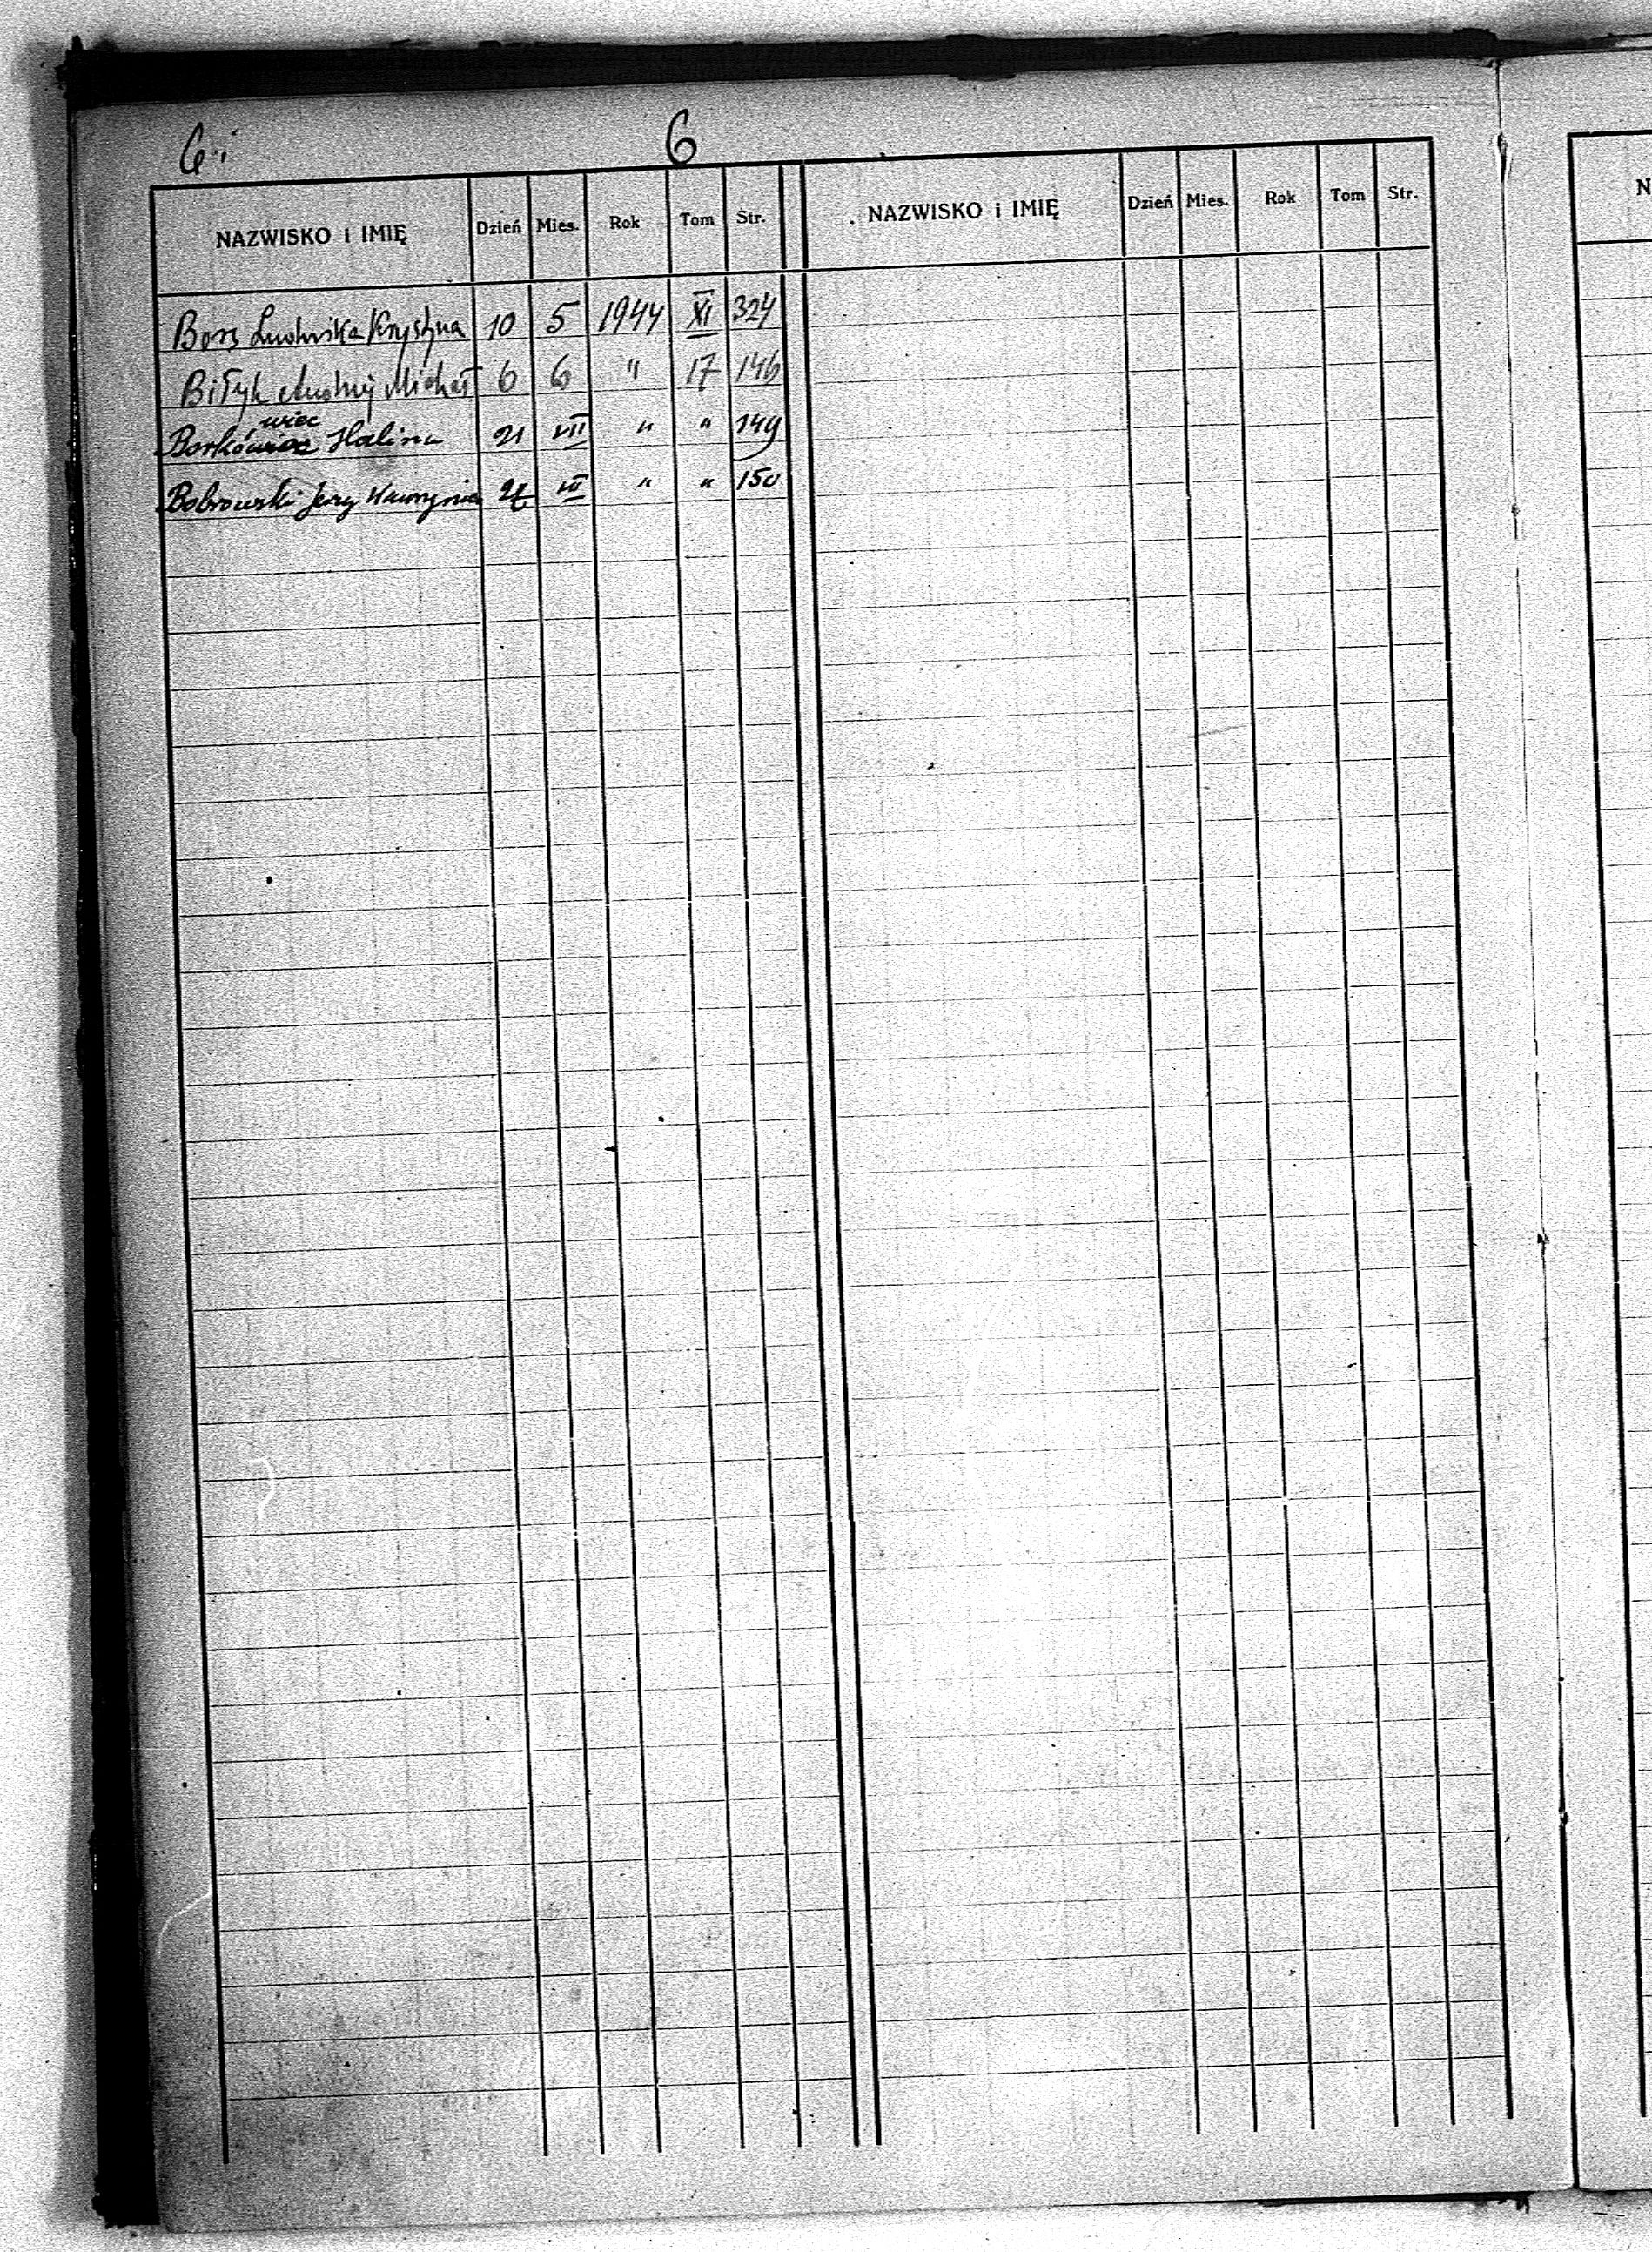 6 6
NAZWISKO i IMIĘ Dzień Mies. Rok Tom Str. NAZWISKO i IMIĘ Dzień Mies. Rok Tom Str. N
Bors Ludwika Krystyna 10 5 1944 XI 324
Biłyk Andrij Michał 6 6 " 17 146
wiec
Borkówiec Halina 21 VII " " 149
Bobrowski Jerzy " " 150